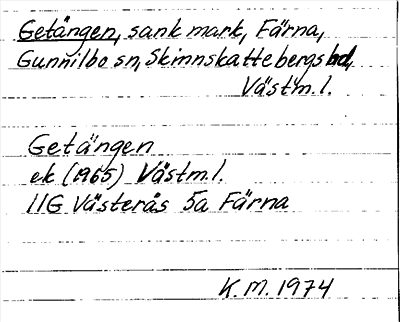 Getängen, sank mark, Färna,
Gunnilbo sn, Skinnskattebergs bd,
Västm.l.
Getängen
ek (1965) Västm.l.
11G Västerås 5a Färna
K.M. 1974